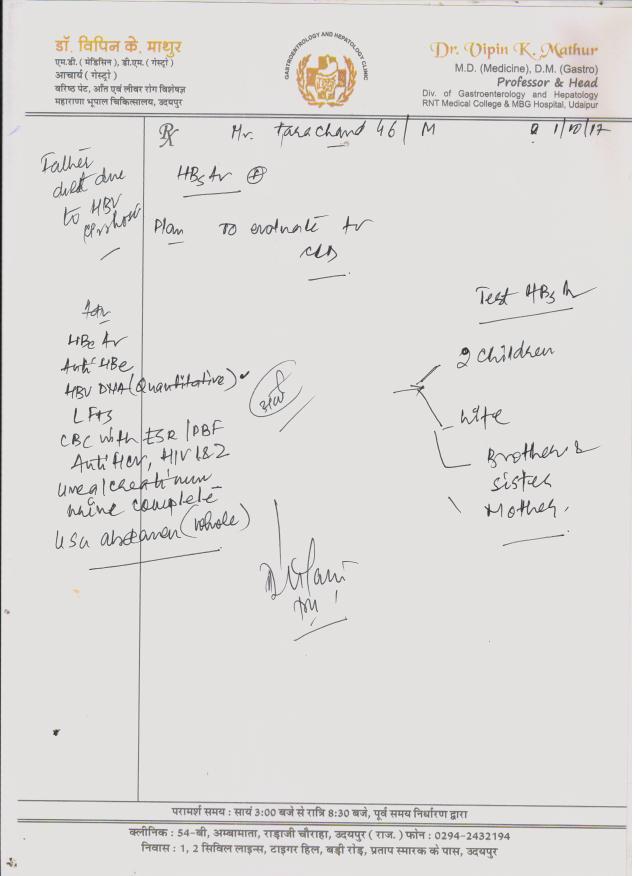 डॉ. विपिन के. माथुर
एम.डी. ( मेडिसिन ), डी.एम. ( गेस्ट्रो )
आचार्य ( गेस्ट्रो )
वरिष्ठ पेट, आँत एवं लीवर रोग विशेषज्ञ
महाराणा भूपाल चिकित्सालय, उदयपुर
GASTROENTROLOGY AND HEPATOLOGY CLINIC
Dr. Vipin K. Mathur
M.D. (Medicine), D.M. (Gastro)
Professor & Head
Div. of Gastroenterology and Hepatology
RNT Medical College & MBG Hospital, Udaipur
Rx Mr. Tarachand 46/M 1/10/17
Father
died due
to HBV
HBsAg +
Plan To evaluate for
CLD
Test HBsAg
2 children
wife
Brother &
sister
Mother
For
HBe Ag
Anti HBe
HBV DNA (Quantitative)
LFTs
CBC with ESR/PBF
Anti HCV, HIV 1&2
urea/creatinine
urine complete
USG abdomen (whole)
परामर्श समय : सायं 3:00 बजे से रात्रि 8:30 बजे, पूर्व समय निर्धारण द्वारा
क्लीनिक : 54-बी, अम्बामाता, राड़ाजी चौराहा, उदयपुर ( राज. ) फोन : 0294-2432194
निवास : 1, 2 सिविल लाइन्स, टाइगर हिल, बड़ी रोड़, प्रताप स्मारक के पास, उदयपुर